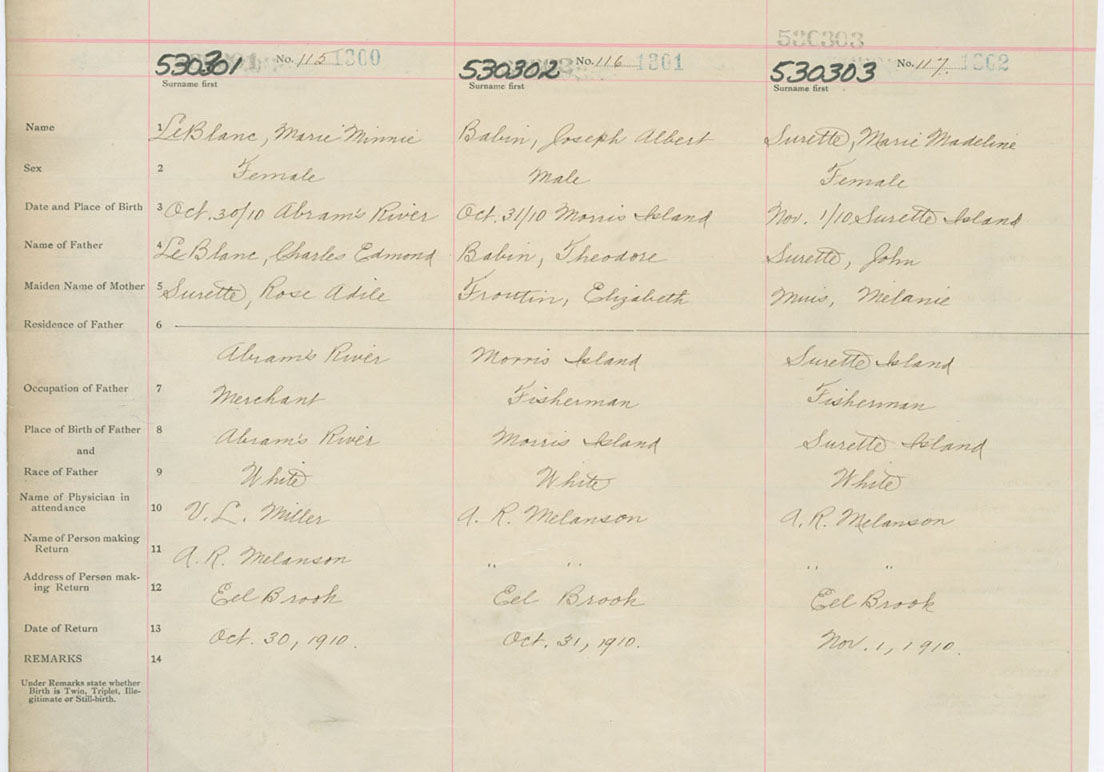 530303
530301 No. 115 1300 530302 No. 116 1301 530303 No. 117. 1302
Surname first Surname first Surname first
Name 1 LeBlanc, Marie Minnie Babin, Joseph Albert Surette, Marie Madeline
Sex 2 Female Male Female
Date and Place of Birth 3 Oct. 30/10 Abram's River Oct. 31/10 Morris Island Nov. 1/10 Surette Island
Name of Father 4 LeBlanc, Charles Edmond Babin, Theodore Surette, John
Maiden Name of Mother 5 Surette, Rose Adile Froutin, Elizabeth Muis, Melanie
Residence of Father 6
Abram's River Morris Island Surette Island
Occupation of Father 7 Merchant Fisherman Fisherman
Place of Birth of Father 8 Abram's River Morris Island Surette Island
and
Race of Father 9 White White White
Name of Physician in
attendance 10 V. L. Miller A. R. Melanson A. R. Melanson
Name of Person making
Return 11 A. R. Melanson " " " "
Address of Person mak-
ing Return 12 Eel Brook Eel Brook Eel Brook
Date of Return 13 Oct. 30, 1910. Oct. 31, 1910. Nov. 1, 1910.
REMARKS 14
Under Remarks state whether
Birth is Twin, Triplet, Ille-
gitimate or Still-birth.